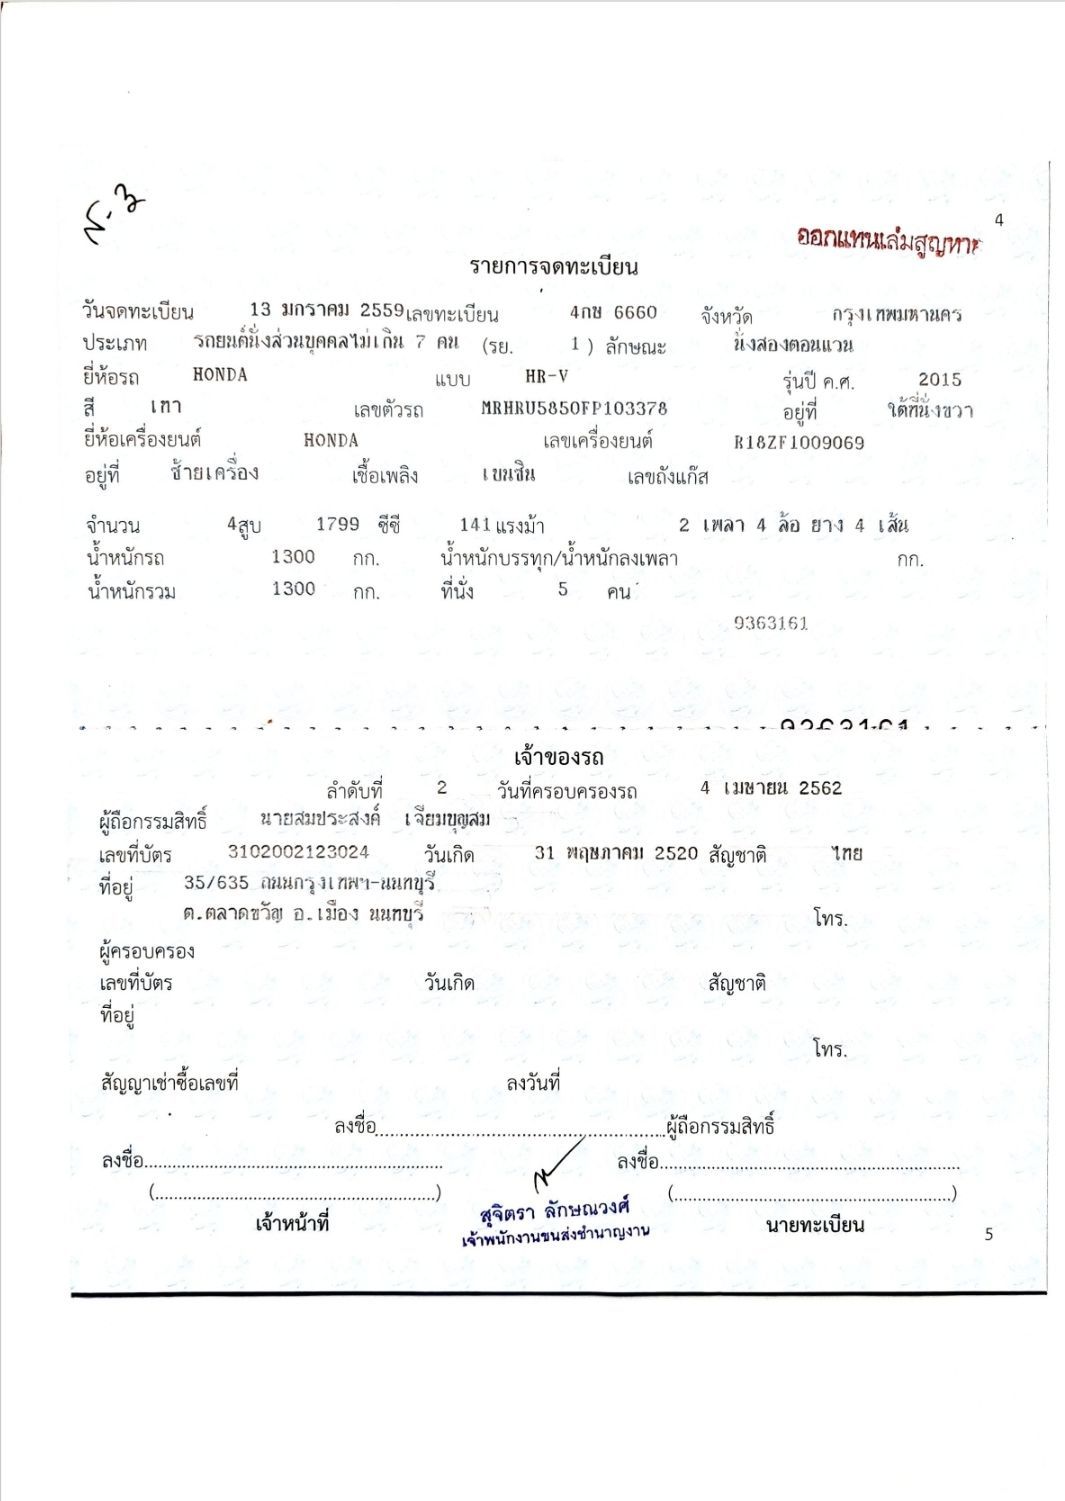 4
ออกแทนเล่มสูญหาย
รายการจดทะเบียน
วันจดทะเบียน 13 มกราคม 2559 เลขทะเบียน 4กษ 6660 จังหวัด กรุงเทพมหานคร
ประเภท รถยนต์นั่งส่วนบุคคลไม่เกิน 7 คน (รย. 1 ) ลักษณะ นั่งสองตอนแวน
ยี่ห้อรถ HONDA แบบ HR-V รุ่นปี ค.ศ. 2015
สี เทา เลขตัวรถ MRHRU5850FP103378 อยู่ที่ ใต้ที่นั่งขวา
ยี่ห้อเครื่องยนต์ HONDA เลขเครื่องยนต์ R18ZF1009069
อยู่ที่ ซ้ายเครื่อง เชื้อเพลิง เบนซิน เลขถังแก๊ส
จำนวน 4 สูบ 1799 ซีซี 141 แรงม้า 2 เพลา 4 ล้อ ยาง 4 เส้น
น้ำหนักรถ 1300 กก. น้ำหนักบรรทุก/น้ำหนักลงเพลา กก.
น้ำหนักรวม 1300 กก. ที่นั่ง 5 คน
9363161
9363161
เจ้าของรถ
ลำดับที่ 2 วันที่ครอบครองรถ 4 เมษายน 2562
ผู้ถือกรรมสิทธิ์ นายสมประสงค์ เจียมบุญสม
เลขที่บัตร 3102002123024 วันเกิด 31 พฤษภาคม 2520 สัญชาติ ไทย
ที่อยู่ 35/635 ถนนกรุงเทพฯ-นนทบุรี
ต.ตลาดขวัญ อ.เมือง นนทบุรี โทร.
ผู้ครอบครอง
เลขที่บัตร วันเกิด สัญชาติ
ที่อยู่
โทร.
สัญญาเช่าซื้อเลขที่ ลงวันที่
ลงชื่อ..........ผู้ถือกรรมสิทธิ์
ลงชื่อ.......... ลงชื่อ..........
(..........) (..........)
สุจิตรา ลักษณวงศ์
เจ้าหน้าที่ เจ้าพนักงานขนส่งชำนาญงาน นายทะเบียน
5